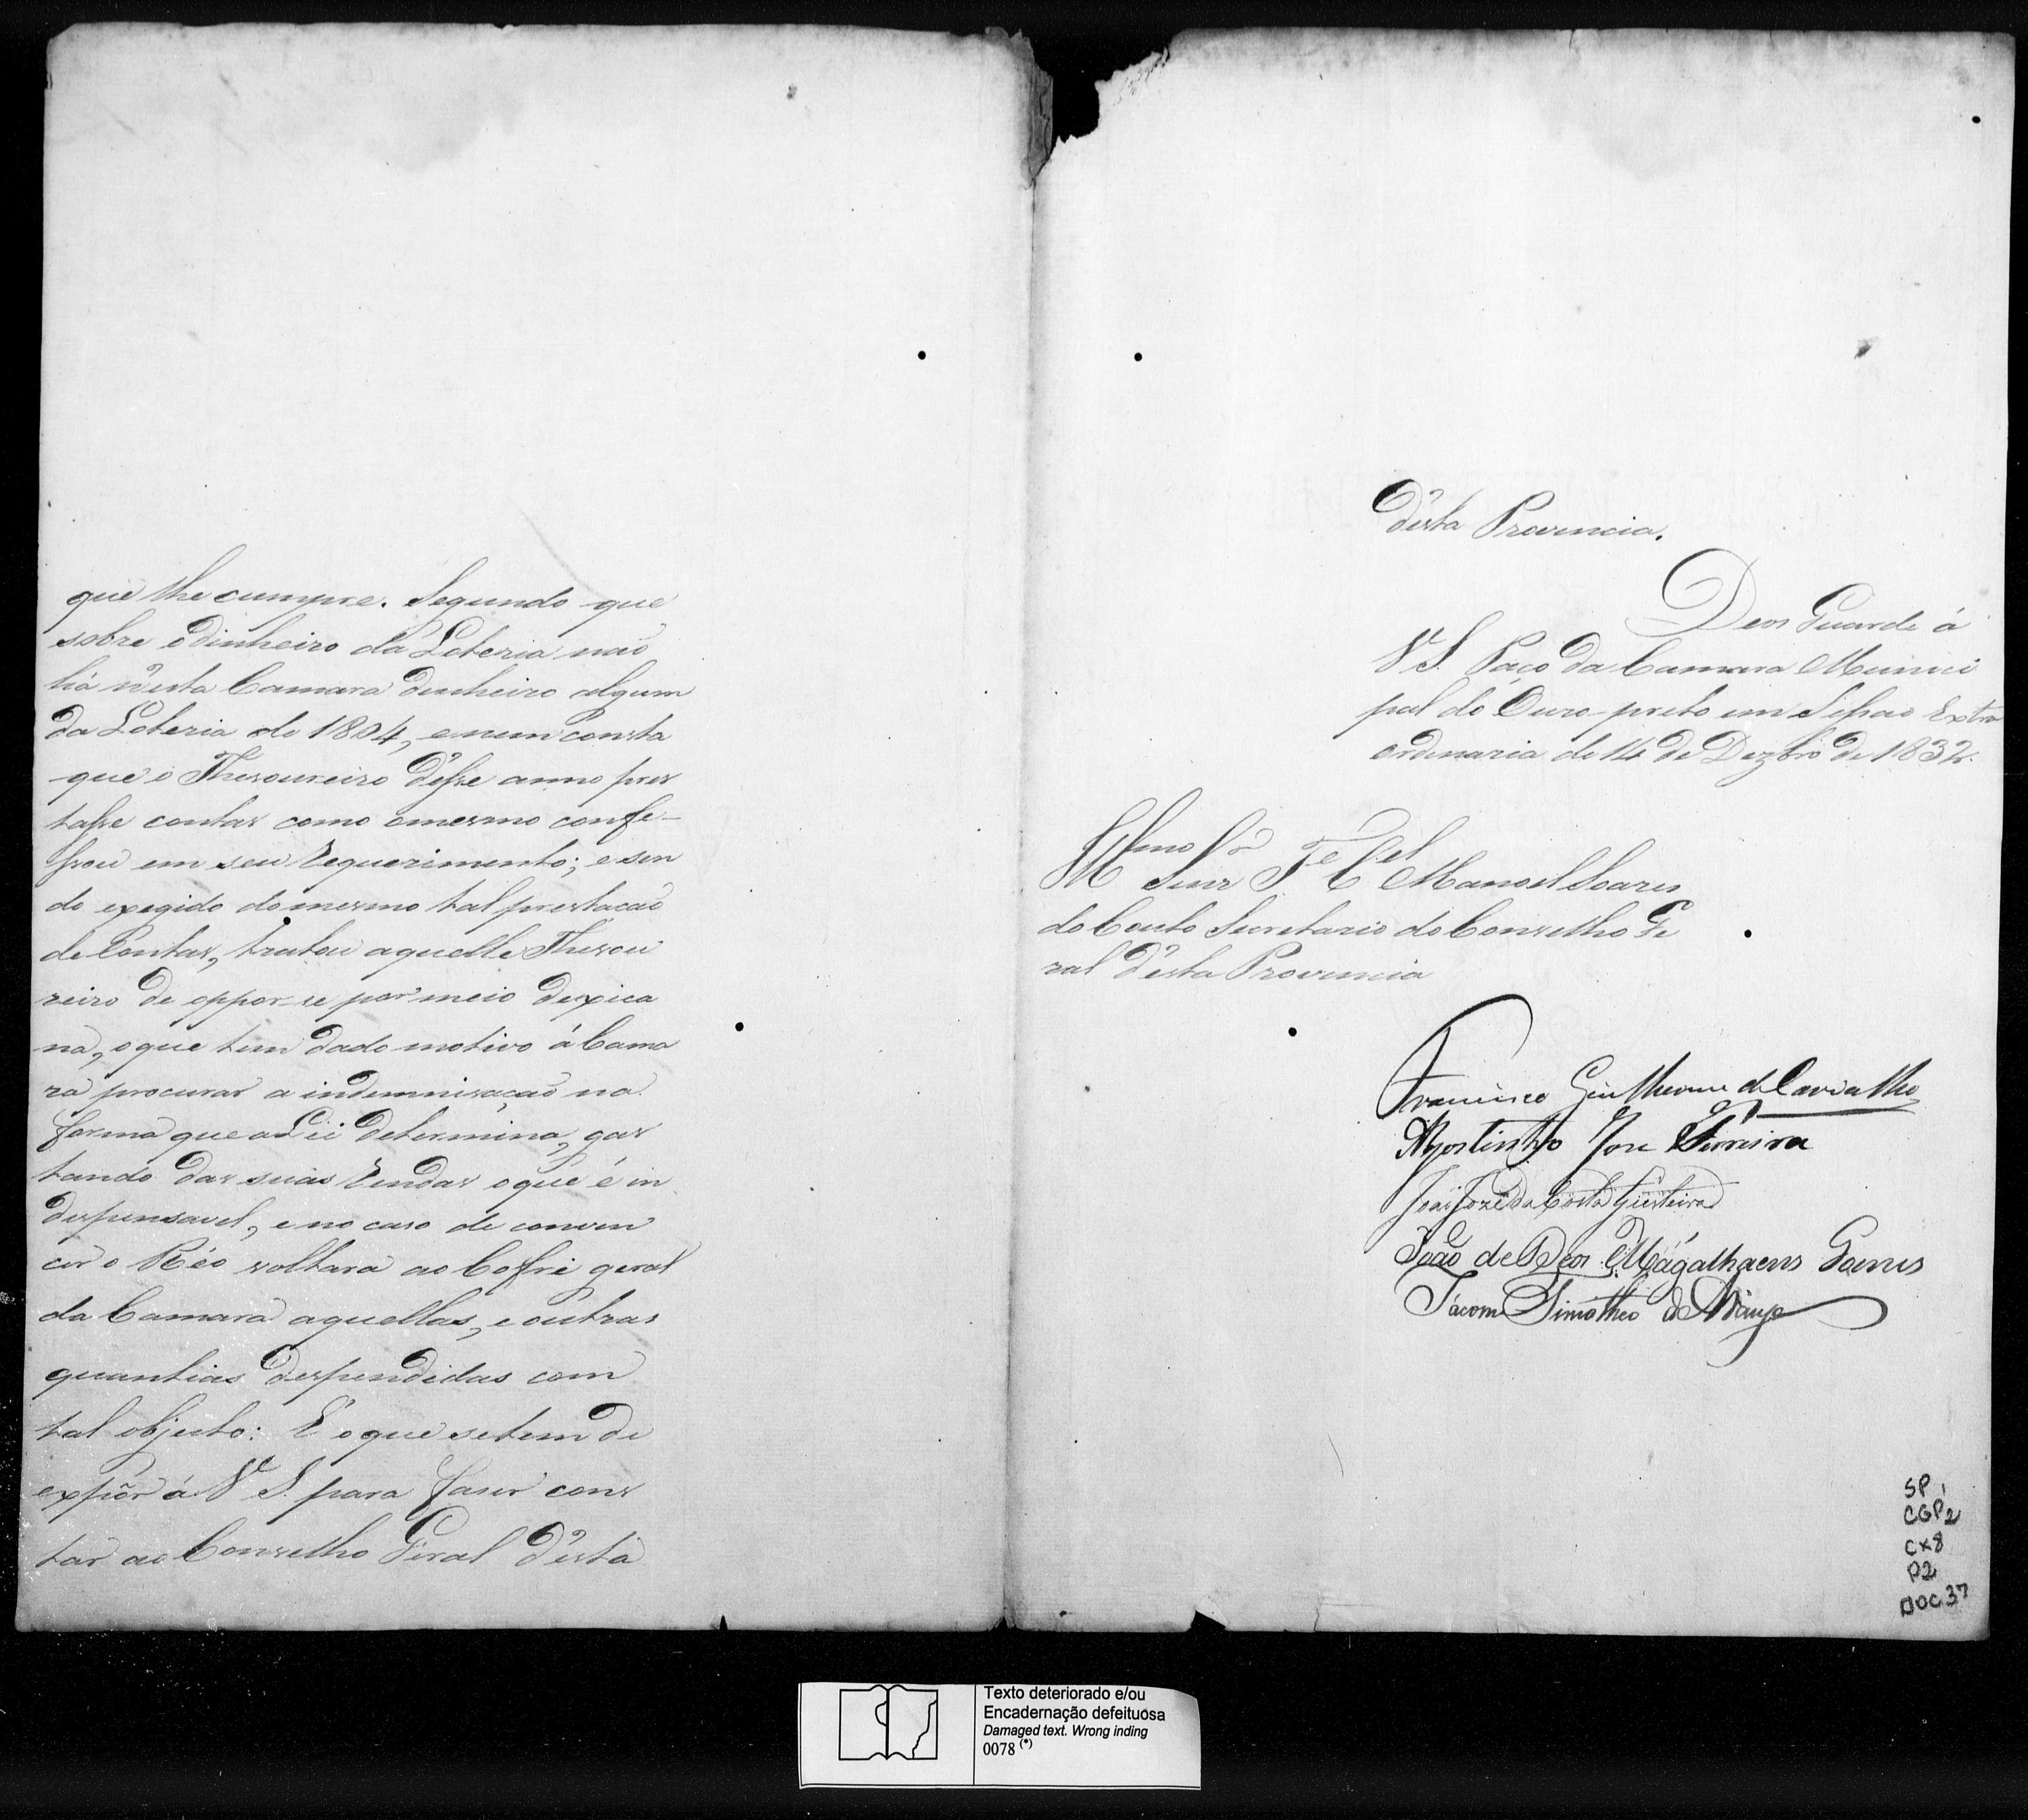 que lhe cumpre. Segundo que
sobre o dinheiro da Loteria não
há n'esta Camara dinheiro algum
da Loteria de 1804, e nem consta
que o Thesoureiro d'esse anno pres
tasse contas como o mesmo confe-
ssou em seu Requerimento; e sen
do exegido do mesmo tal prestacaõ
de Contas, tratou aquelle Thesou
reiro de oppor-se por meio de xica
na, o que tem dado motivo á Cama
ra procurar a indemnisaçaõ na
forma que a Lei determina, gas
tando das suas Rendas o que é in
dispensavel, e no caso de conven
cer o Réo voltara ao Coffre geral
da Camara aquellas, e outras
quantias despendidas com
tal objecto: É o que se tem de
expôr á V S. para faser cons
tar ao Conselho Geral d'esta
d'esta Provincia.
Deos Guarde á
V S. Paço da Camara Munici
pal do Ouro-preto em Sessao Extra
ordenaria de 14 de Dezbro de 1832.
Illmo Snr Te Cel Manoel Soares
do Couto Secretario do Conselho Ge
ral d'esta Provincia
Francisco Guilherme de Carvalho
Agostinho Jose Ferreira
José da Costa
João de Deos Magalhaens Gomes
Timotheo de Araujo
SP 1
CGP2
CX8
P2
DOC 37
Texto deteriorado e/ou
Encadernação defeituosa
Damaged text. Wrong inding
0078 (*)